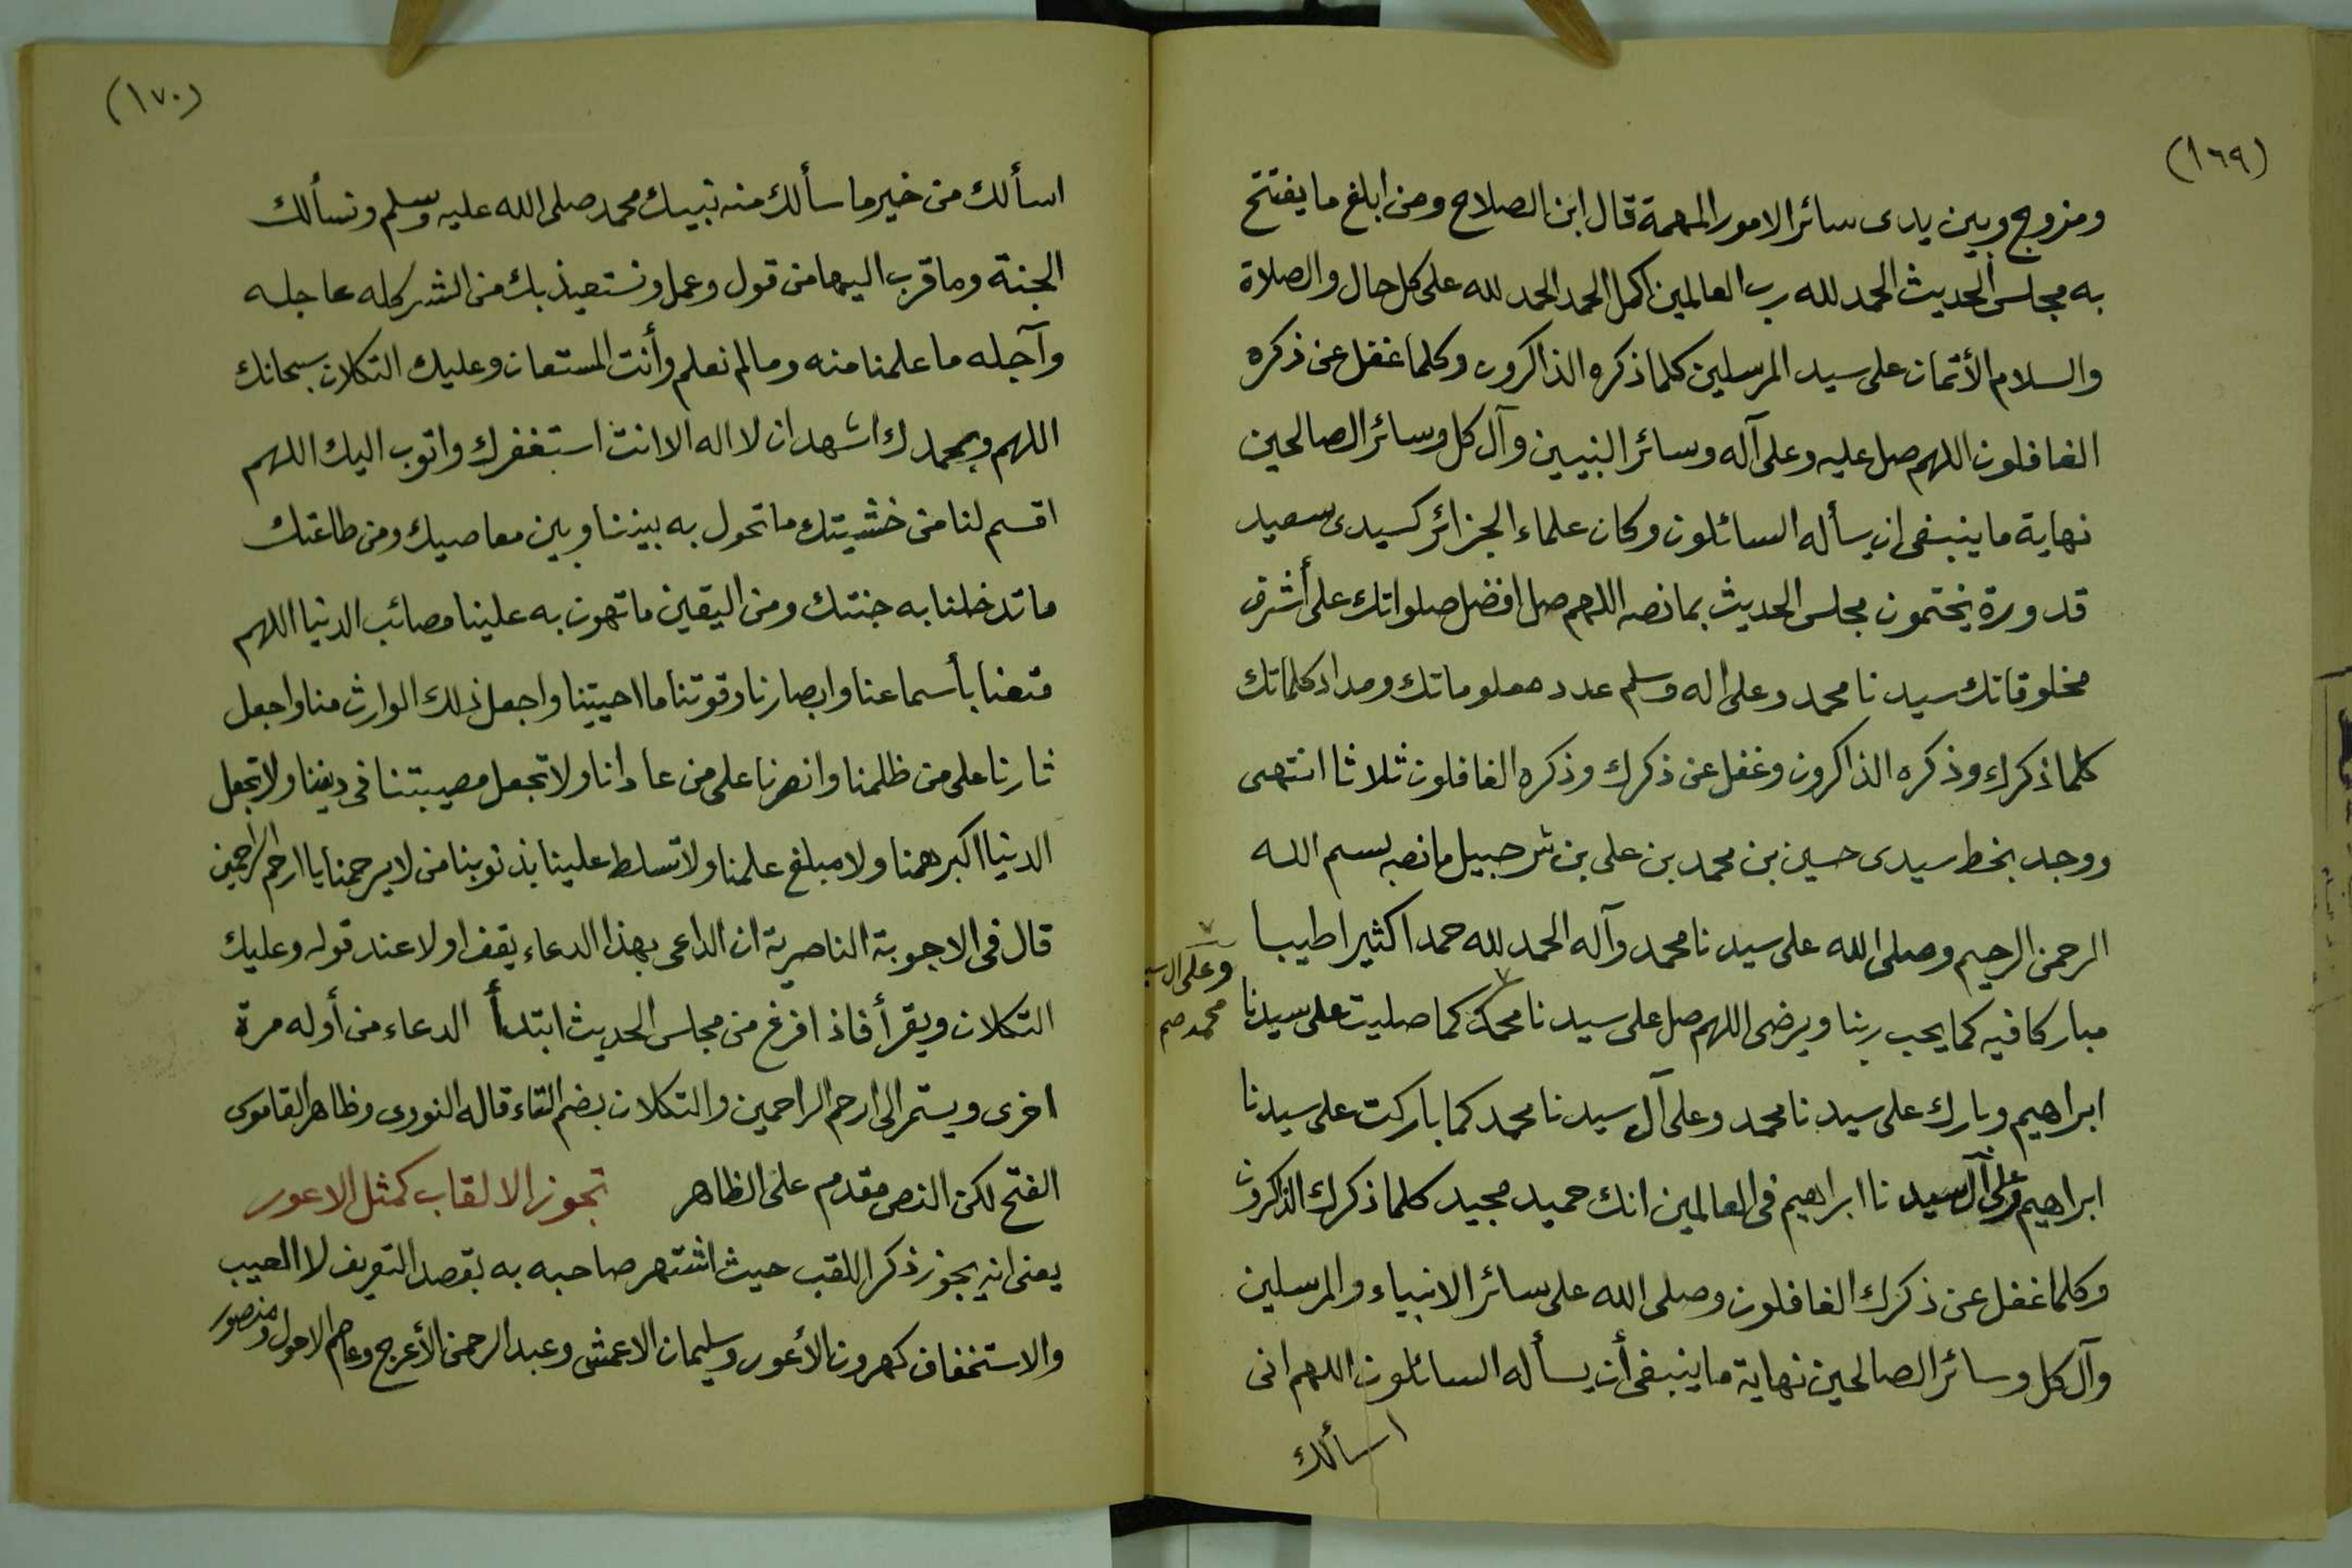 (١٦٩)
ومزوج وبين يدى سائر الامور المهمة قال ابن الصلاح ومن ابلغ ما يفتتح
به مجلس الحديث الحمد لله رب العالمين اكمل الحمد الحمد لله على كل حال والصلاة
والسلام الأتمان على سيد المرسلين كلما ذكره الذاكرون وكلما غفل عن ذكره
الغافلون اللهم صل عليه وعلى آله وسائر النبيين وآل كل وسائر الصالحين
نهاية ما ينبغى ان يسأله السائلون وكان علماء الجزائر كسيدى سعيد
قدورة يختمون مجلس الحديث بما نصه اللهم صل افضل صلواتك على أشرف
مخلوقاتك سيدنا محمد وعلى اله وسلم عدد معلوماتك ومداد كلماتك
كلما ذكرك وذكره الذاكرون وغفل عن ذكرك وذكره الغافلون ثلاثا انتهى
ووجد بخط سيدى حسين بن محمد بن على بن شرحبيل ما نصه بسم الله
الرحمن الرحيم وصلى الله على سيدنا محمد وآله الحمد لله حمدا كثيرا طيبا
مباركا فيه كما يحب ربنا ويرضى اللهم صل على سيدنا محمد كما صليت على سيدنا
وعلى آل
محمد صح
ابراهيم وبارك على سيدنا محمد وعلى آل سيدنا محمد كما باركت على سيدنا
ابراهيم وعلى آل سيدنا ابراهيم فى العالمين انك حميد مجيد كلما ذكرك الذاكرون
وكلما غفل عن ذكرك الغافلون وصلى الله على سائر الانبياء والمرسلين
وآل كل وسائر الصالحين نهاية ما ينبغى أن يسأله السائلون اللهم انى
اسألك
(١٧٠)
اسألك من خير ما سألك منه نبيك محمد صلى الله عليه وسلم ونسألك
الجنة وما قرب اليها من قول وعمل ونستعيذ بك من الشر كله عاجله
وآجله ما علمنا منه وما لم نعلم وأنت المستعان وعليك التكلان سبحانك
اللهم وبحمدك اشهد ان لا اله الا انت استغفرك واتوب اليك اللهم
اقسم لنا من خشيتك ما تحول به بيننا وبين معاصيك ومن طاعتك
ما تدخلنا به جنتك ومن اليقين ما تهون به علينا مصائب الدنيا اللهم
متعنا بأسماعنا وابصارنا وقوتنا ما احييتنا واجعل ذلك الوارث منا واجعل
ثارنا على من ظلمنا وانصرنا على من عادانا ولا تجعل مصيبتنا فى ديننا ولا تجعل
الدنيا اكبر همنا ولا مبلغ علمنا ولا تسلط علينا بذنوبنا من لا يرحمنا يا ارحم الراحمين
قال فى الاجوبة الناصرية ان الداعى بهذا الدعاء يقف اولا عند قوله وعليك
التكلان ويقرأ فاذا فرغ من مجلس الحديث ابتدأ الدعاء من أوله مرة
اخرى ويستمر الى ارحم الراحمين والتكلان بضم التاء قاله النووى وظاهر القاموس
الفتح لكن النص مقدم على الظاهر تجوز الالقاب كمثل الاعور
يعنى انه يجوز ذكر اللقب حيث اشتهر صاحبه به بقصد التعريف لا العيب
والاستخفاف كهرون الأعور وسليمان الاعمش وعبد الرحمن الأعرج وعاصم الاحول ومنصور